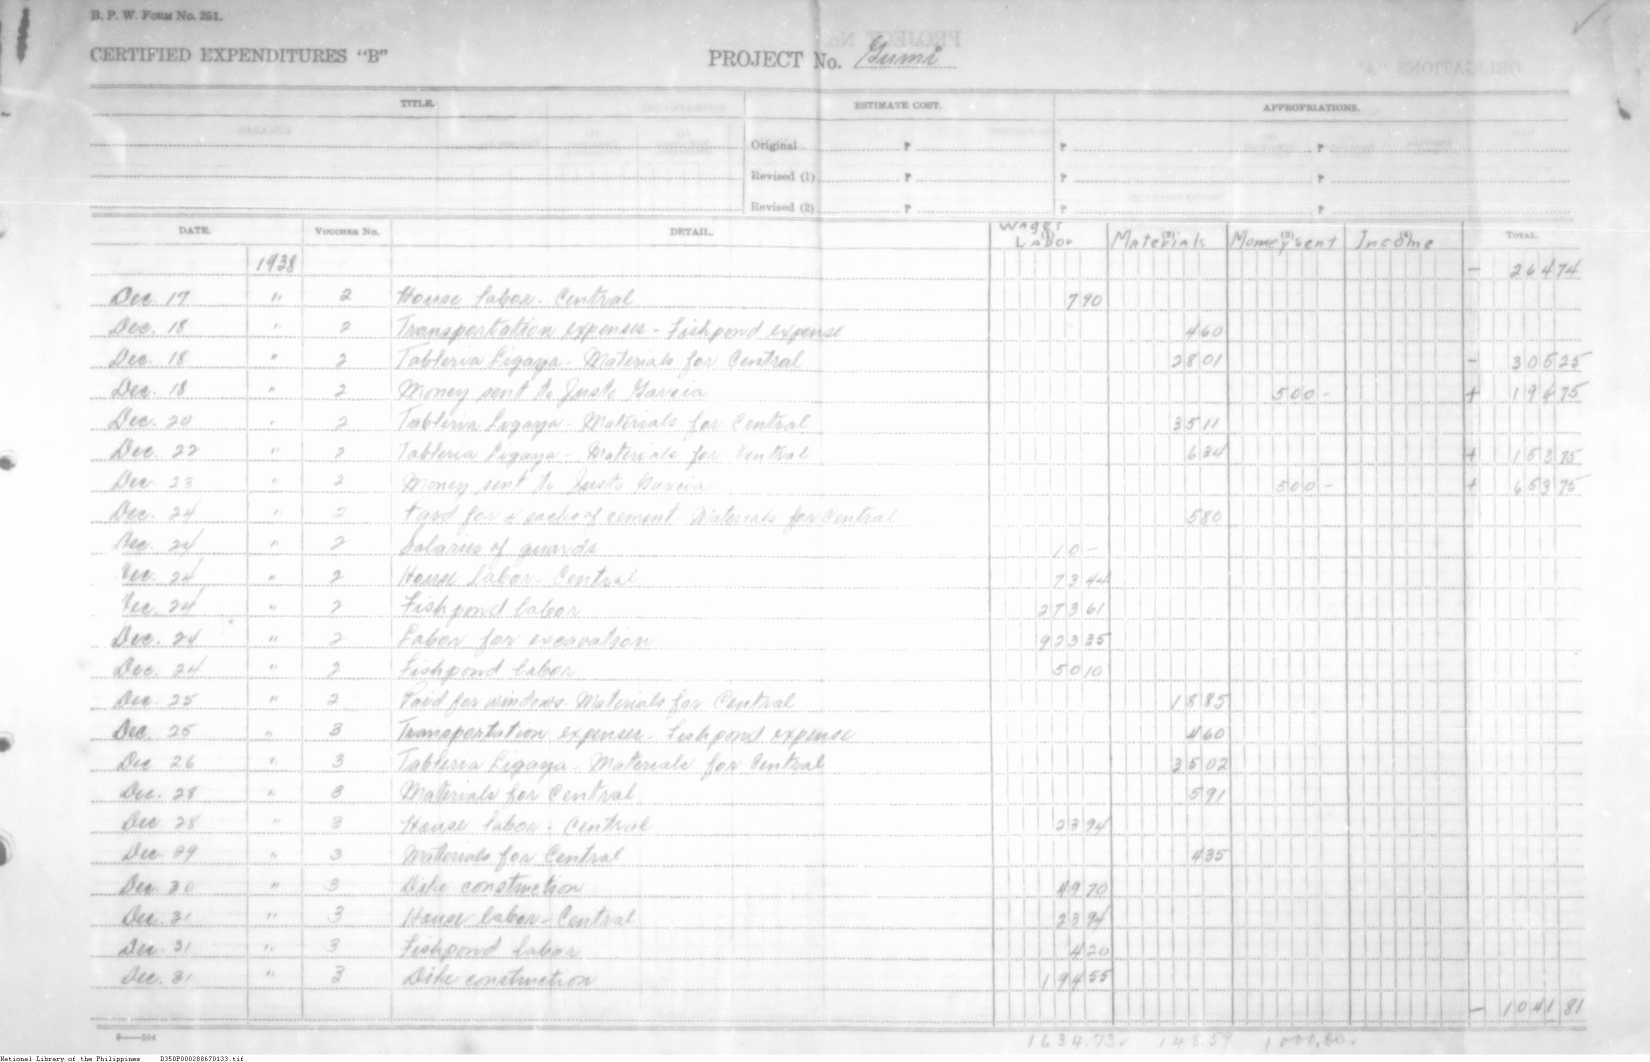 B. P. W. Form No. 251.
CERTIFIED EXPENDITURES "B" PROJECT No. Gumi
TITLE. ESTIMATE COST. APPROPRIATIONS.
Original ₱ ₱ ₱
Revised (1) ₱ ₱ ₱
Revised (2) ₱ ₱ ₱
DATE. VOUCHER No. DETAIL. Wages Labor (1) Materials (2) Money sent (3) Income (4) TOTAL.
1938 - 264 74
Dec. 17 " 2 House labor - Central 7 90
Dec. 18 " 2 Transportation expenses - Fishpond expense 4 60
Dec. 18 " 2 Tableria Ligaya - Materials for Central 28 01 - 305 25
Dec. 18 " 2 Money sent to Justo Garcia 500 - + 194 75
Dec. 20 " 2 Tableria Ligaya - Materials for Central 35 11
Dec. 22 " 2 Tableria Ligaya - Materials for Central 6 34 + 153 75
Dec. 23 " 2 Money sent to Justo Garcia 500 - + 653 75
Dec. 24 " 2 Paid for 4 sacks of cement - Materials for Central 5 80
Dec. 24 " 2 Salaries of guards 10 -
Dec. 24 " 2 House labor - Central 73 44
Dec. 24 " 2 Fishpond labor 273 61
Dec. 24 " 2 Labor for excavation 923 35
Dec. 24 " 2 Fishpond labor 50 10
Dec. 25 " 2 Paid for windows - Materials for Central 18 85
Dec. 25 " 3 Transportation expenses - Fishpond expense 4 60
Dec 26 " 3 Tableria Ligaya - Materials for Central 35 02
Dec. 28 " 3 Materials for Central 5 91
Dec 28 " 3 House labor - Central 23 94
Dec. 29 " 3 Materials for Central 4 35
Dec. 30 " 3 Dike construction 49 70
Dec. 31 " 3 House labor - Central 23 94
Dec. 31 " 3 Fishpond labor 4 20
Dec. 31 " 3 Dike construction 194 55
- 1041 81
1634.73 148.59 1000.00
National Library of the Philippines D350P000288670133.tif